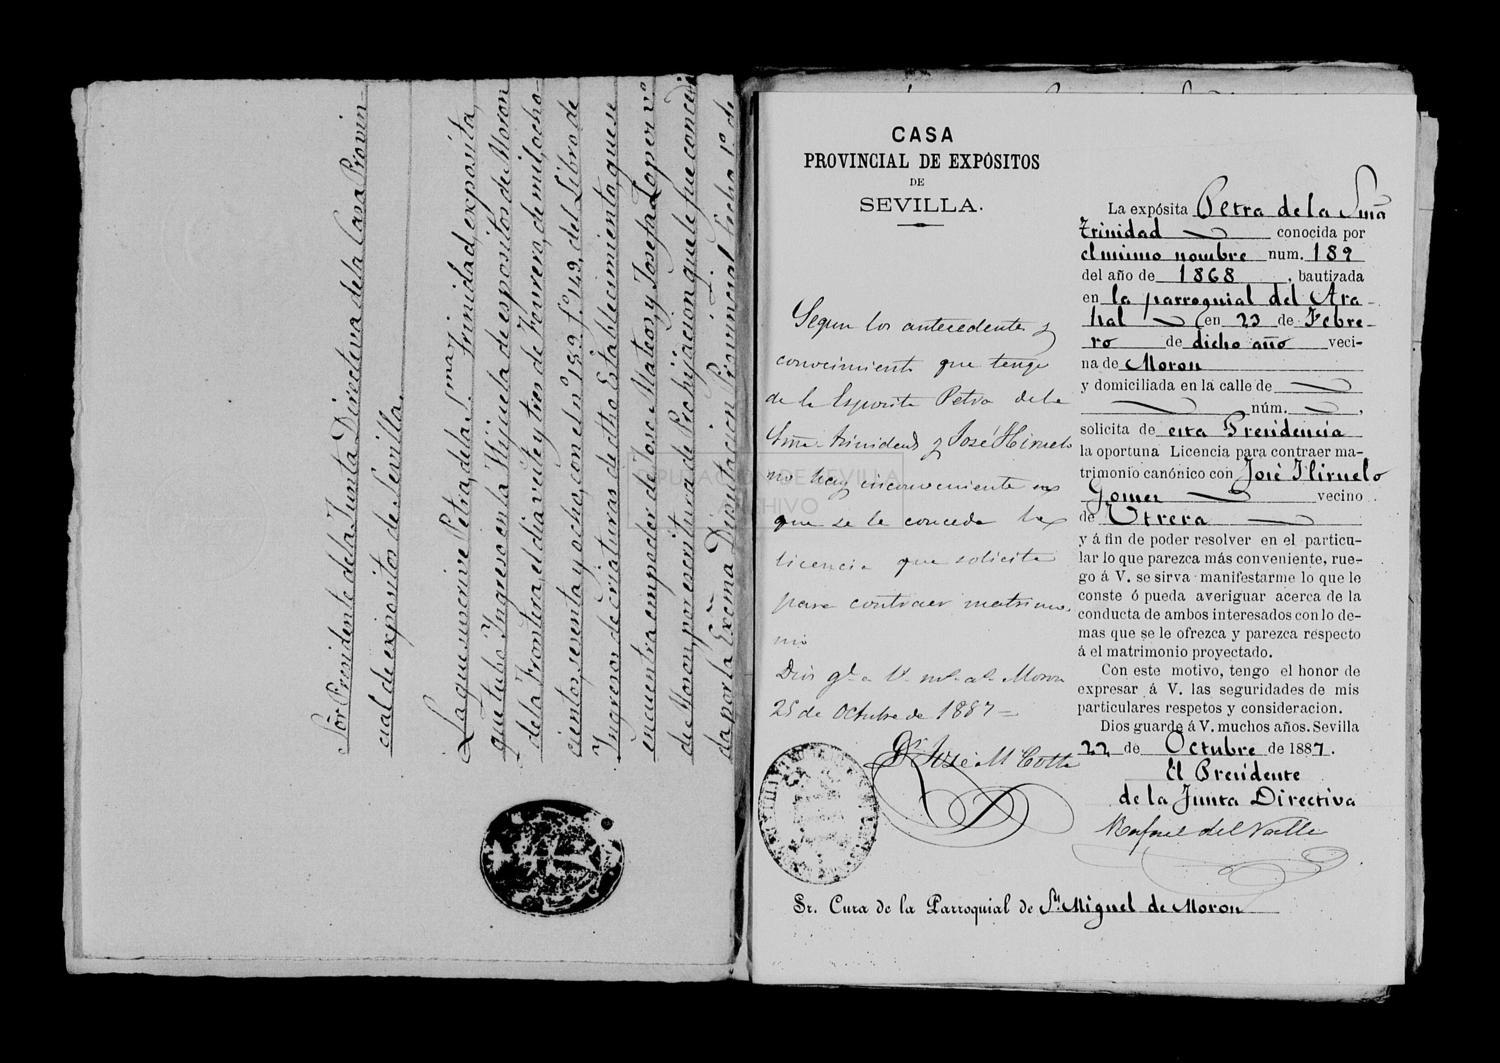 Sōr Presidente de la Junta Directiva de la Casa Provin
cial de expósitos de Sevilla.
La que suscrive Petra, de la S.mas Trinidad, exposita,
que tubo Ingreso en la Hijuela de expositos de Moron
de la Frontera, el dia veinte y tres de Febrero, de mil ocho-
cientos, sesenta y ocho, con el nº 189 fº 149, del Libro de
Ingresos de criaturas de dho Establecimiento, que se
encuentra en poder de Jose Mateos y Josefa Lopez vº
de Moron, por escritura de Prohijacion que le fue concedi
da por la Excma Diputacion Provincial fecha 1º de
CASA
PROVINCIAL DE EXPÓSITOS
DE
SEVILLA.
Segun los antecedentes y
conocimiento que tengo
de la Esposita Petra de la
Sma Trinidad y José Hiruelo
no hay inconveniente en
que se le conceda la
licencia que solicita
para contraer matrimo
nio
Dios gde a V. ms. as. Moron
25 de Octubre de 1887=
José Mª Cotta
La expósita Petra de la Sma
Trinidad conocida por
el mismo nombre num. 189
del año de 1868, bautizada
en la parroquial del Ara-
hal en 23 de Febre-
ro de dicho año veci-
na de Moron
y domiciliada en la calle de
núm.,
solicita de esta Presidencia
la oportuna Licencia para contraer ma-
trimonio canónico con José Hiruelo
Gomez vecino
de Utrera
y á fin de poder resolver en el particu-
lar lo que parezca más conveniente, rue-
go á V. se sirva manifestarme lo que le
conste ó pueda averiguar acerca de la
conducta de ambos interesados con lo de-
mas que se le ofrezca y parezca respecto
á el matrimonio proyectado.
Con este motivo, tengo el honor de
expresar á V. las seguridades de mis
particulares respetos y consideracion.
Dios guarde á V. muchos años. Sevilla
22 de Octubre de 1887.
El Presidente
de la Junta Directiva
Rafael del Valle
Sr. Cura de la Parroquial de Sn Miguel de Moron
DIPUTACIÓN DE SEVILLA
ARCHIVO